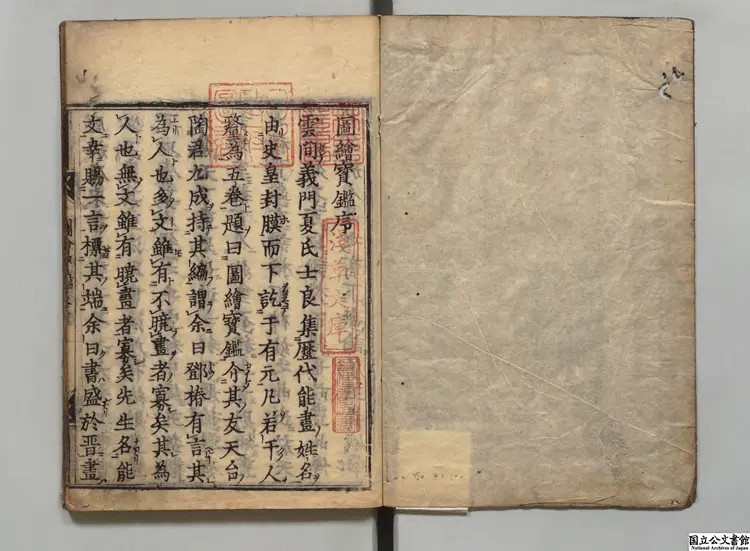 圖繪寶鑑序
雲間義門夏氏士良集歷代能畫姓名
由史皇封膜而下訖于有元凡若干人
釐為五卷題曰圖繪寶鑑介其友天台
陶君九成持其編謂余曰鄧椿有言其
為人也多文雖有不曉畫者寡矣其為
人也無文雖有曉畫者寡矣先生名能
文幸賜一言標其端余曰書盛於晋畫
淺草文庫
国立公文書館
National Archives of Japan